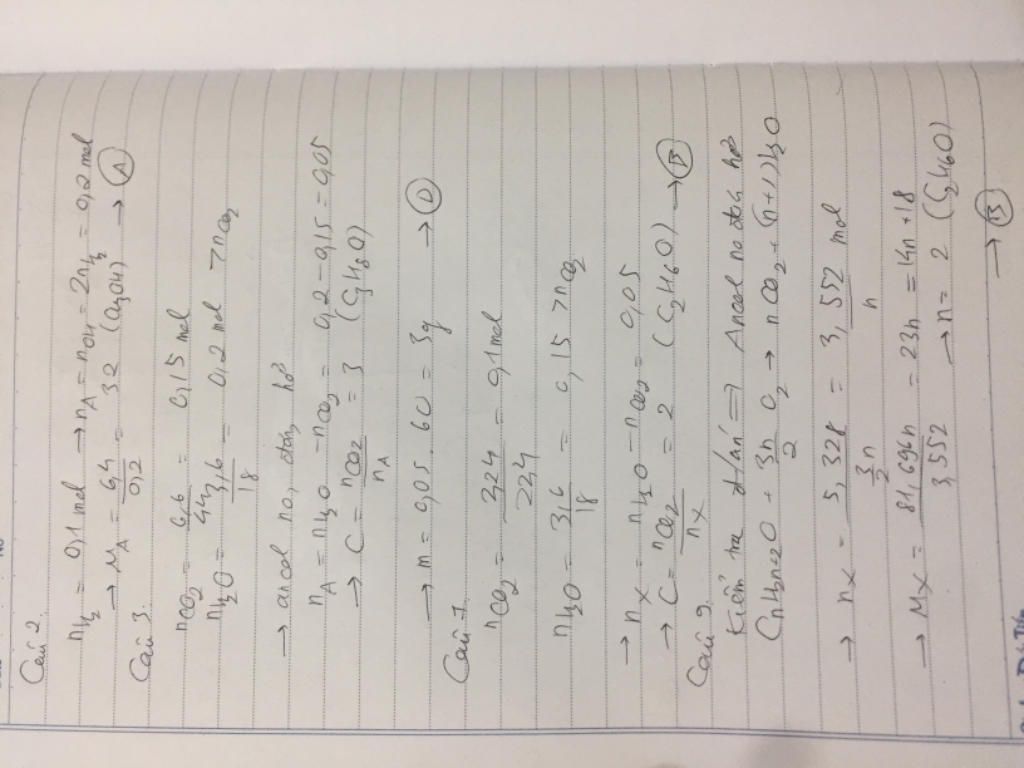 Câu 2.
nH2 = 0,1 mol → nA = nOH = 2nH2 = 0,2 mol
→ MA = 6,4 / 0,2 = 32 (CH3OH) → A
Câu 3.
nCO2 = 6,6 / 44 = 0,15 mol
nH2O = 3,6 / 18 = 0,2 mol > nCO2
→ ancol no, đơn, hở
nA = nH2O - nCO2 = 0,2 - 0,15 = 0,05
→ C = nCO2 / nA = 3 (C3H8O)
→ m = 0,05 . 60 = 3g → D
Câu 7.
nCO2 = 3,24 / 22,4 = 0,1 mol
nH2O = 3,6 / 18 = 0,15 > nCO2
→ nX = nH2O - nCO2 = 0,05
→ C = nCO2 / nX = 2 (C2H6O) → B
Câu 9.
Kiểm tra đ/án => Ancol no đơn hở
CnH2n+2O + 3n/2 O2 → nCO2 + (n+1)H2O
→ nX = 5,328 / 3/2 n = 3,552 / n mol
→ MX = 81,696n / 3,552 = 23n = 14n + 18
→ n = 2 (C2H6O)
→ B